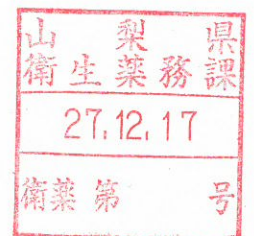 山梨県
衛生薬務課
27.12.17
衛薬第 号